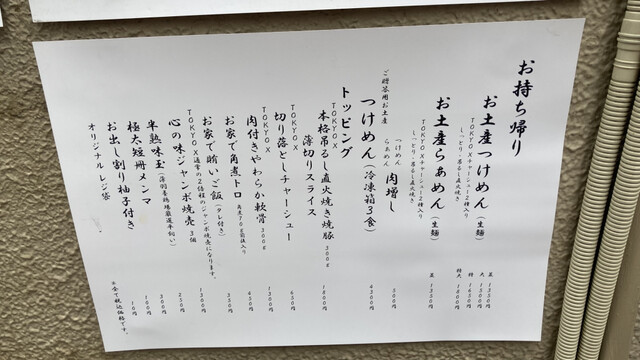 お持ち帰り
お土産つけめん（生麺） 並 1350円
TOKYO Xチャーシュー2種入り 大 1500円
しっとり・吊るし直火焼き 特 1650円
特大 1800円
お土産らぁめん（生麺） 並 1350円
TOKYO Xチャーシュー2種入り
しっとり・吊るし直火焼き
つけめん
らぁめん 肉増し 500円
ご贈答用お土産
つけめん（冷凍箱3食） 4300円
トッピング
本格吊るし直火焼き焼豚 300g 1800円
TOKYO X
薄切りスライス 450円
TOKYO X
切り落としチャーシュー 1300円
TOKYO X
肉付きやわらか軟骨 300g 450円
お家で角煮トロ 角煮70g前後入り 250円
お家で賄いご飯（タレ付き） 1200円
TOKYO X通常の2倍程のジャンボ焼売になります。
心の味ジャンボ焼売 3個 250円
半熟味玉 300円
極太短冊メンマ 100円
お出し割り柚子付き 10円
オリジナルレジ袋
※全て税込価格です。